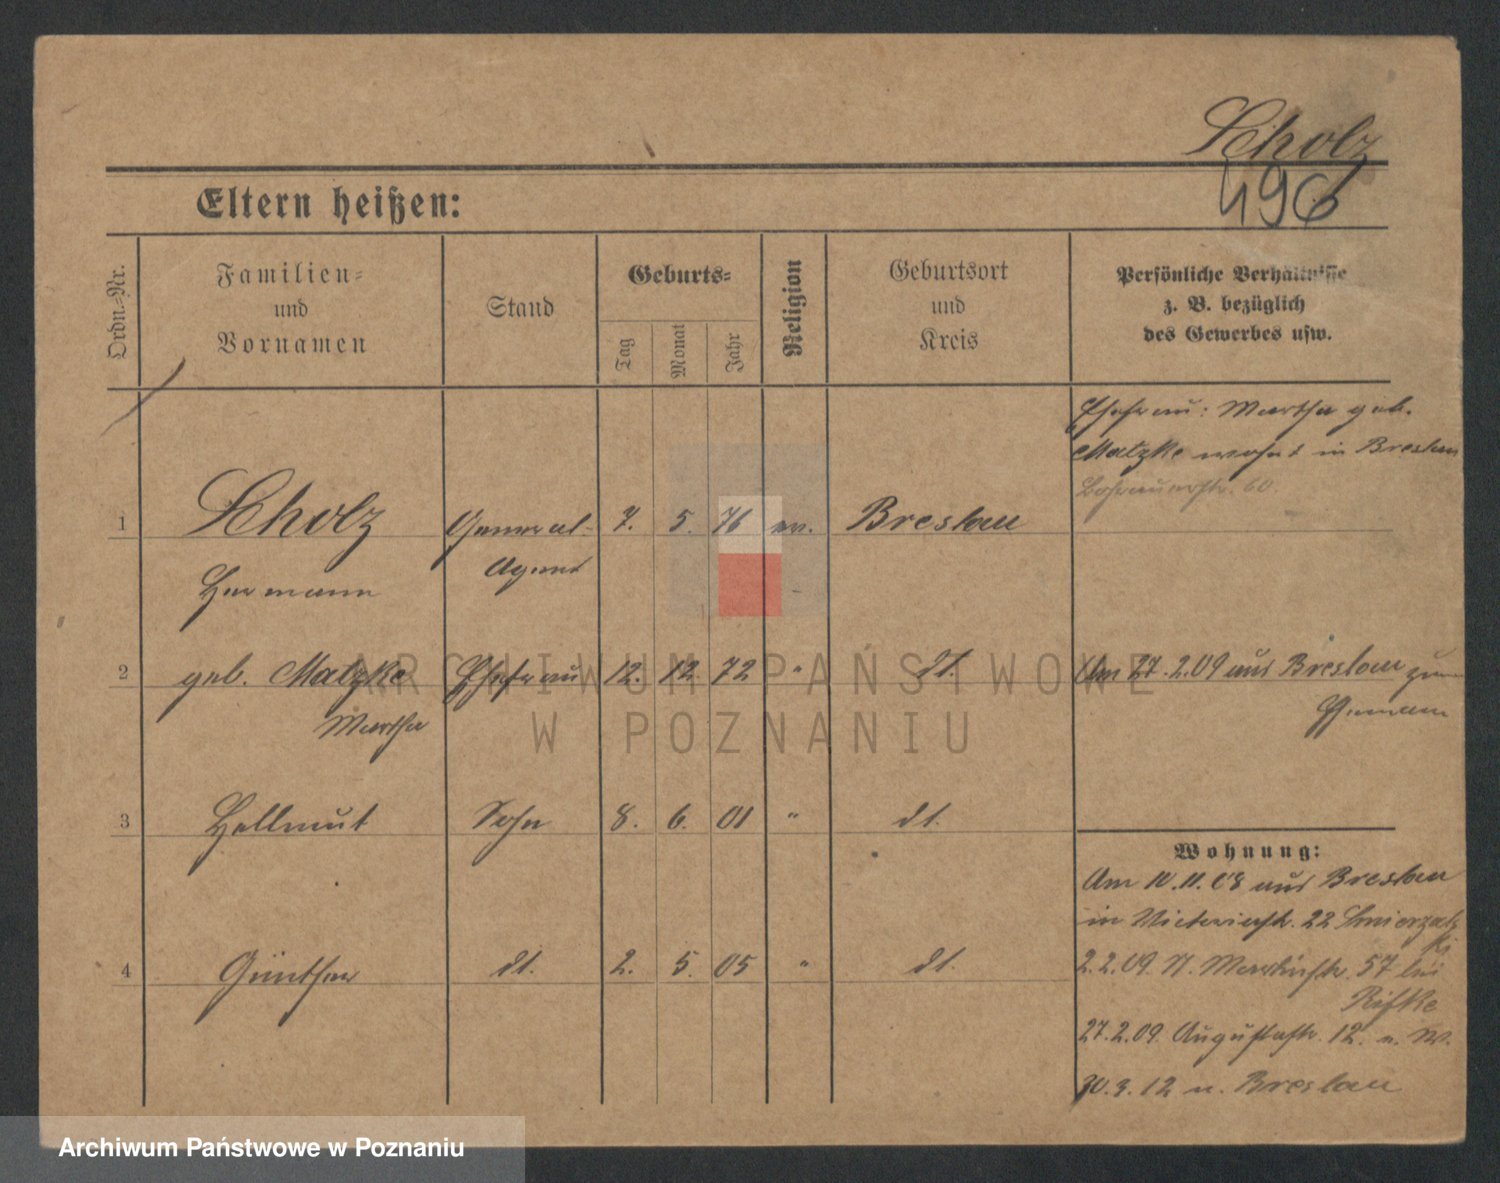 Scholz
496
Eltern heißen:
Ordn.=Nr.
Familien=
und
Vornamen
Stand
Geburts=
Tag
Monat
Jahr
Religion
Geburtsort
und
Kreis
Persönliche Verhältnisse
z. B. bezüglich
des Gewerbes usw.
Ehefrau: Martha geb.
Matzke wohnt in Breslau
Bohrauerstr. 60.
1 Scholz General- 7. 5. 76 ev. Breslau
Hermann Agent
2 geb. Matzke Ehefrau 12. 12. 72 " dt. Am 27.2.09 aus Breslau zum
Martha Ehemann
3 Hellmut Sohn 8. 6. 01 " dt.
Wohnung:
Am 10.11.08 aus Breslau
in Victoriastr. 22
4 Günther dt. 2. 5. 05 " dt.
2.2.09. N. Martinstr. 57 bei
Rifke
27.2.09. Augustastr. 12. n. W.
30.3.12 n. Breslau
ARCHIWUM PAŃSTWOWE
W POZNANIU
Archiwum Państwowe w Poznaniu